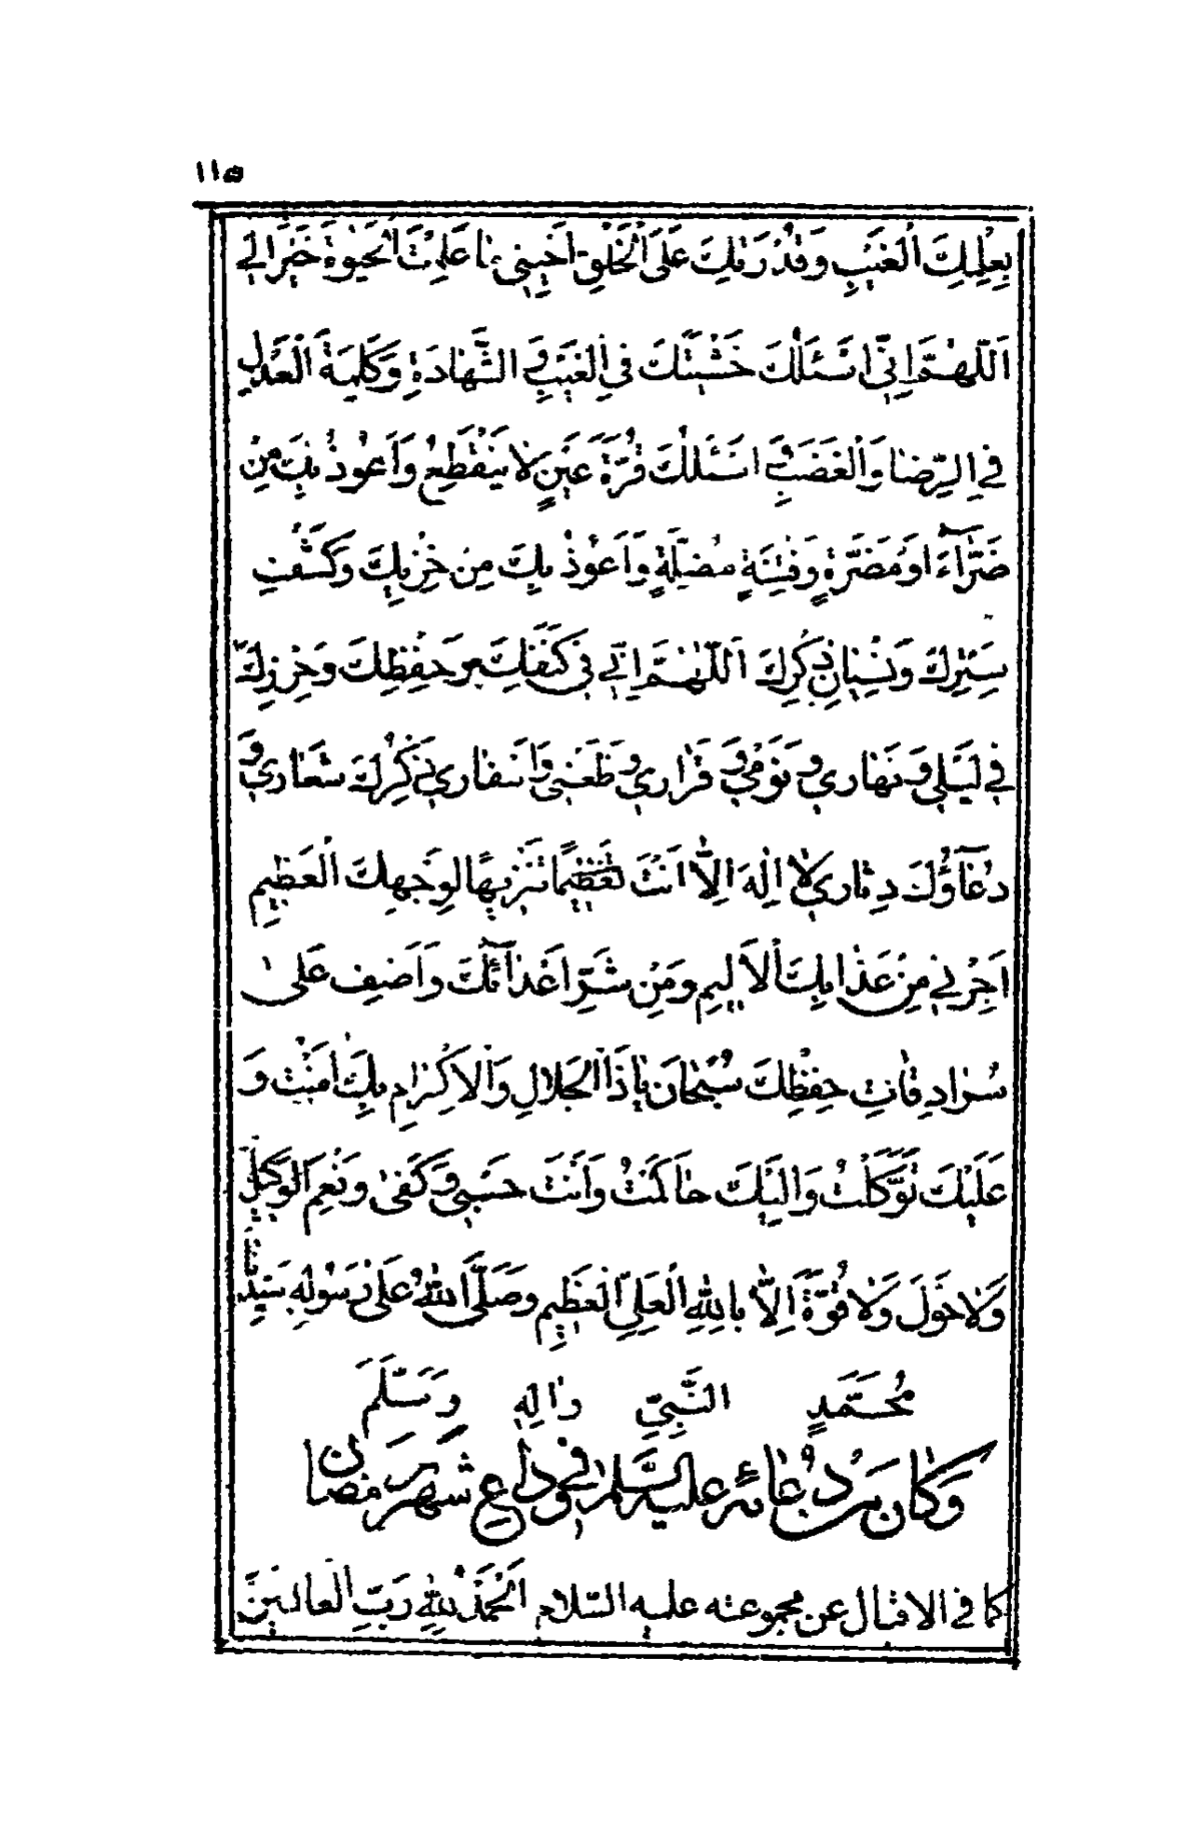 ١١٥
بِعِلْمِكَ الْغَيْبِ وَقُدْرَتِكَ عَلَى الْخَلْقِ اَحْيِنِي مَا عَلِمْتَ الْحَيٰوةَ خَيْرًا لِي
اَللّٰهُمَّ اِنِّي اَسْئَلُكَ خَشْيَتَكَ فِي الْغَيْبِ وَ الشَّهَادَةِ وَكَلِمَةَ الْعَدْلِ
فِي الرِّضَا وَالْغَضَبِ وَ اَسْئَلُكَ قُرَّةَ عَيْنٍ لَا يَنْقَطِعُ وَاَعُوذُ بِكَ مِنْ
ضَرَّاءَ اَوْ مَضَرَّةٍ وَفِتْنَةٍ مُضِلَّةٍ وَاَعُوذُ بِكَ مِنْ خِزْيِكَ وَكَشْفِ
سِتْرِكَ وَنِسْيَانِ ذِكْرِكَ اَللّٰهُمَّ اِنِّي فِي كَنَفِكَ وَحِفْظِكَ وَحِرْزِكَ
فِي لَيْلِي وَنَهَارِي وَنَوْمِي وَ قَرَارِي وَظَعْنِي وَاَسْفَارِي ذِكْرُكَ شِعَارِي وَ
دُعَاؤُكَ دِثَارِي لَا اِلٰهَ اِلَّا اَنْتَ تَعْظِيمًا تَنْزِيهًا لِوَجْهِكَ الْعَظِيمِ
اَجِرْنِي مِنْ عَذَابِكَ الْاَلِيمِ وَمِنْ شَرِّ اَعْدَائِكَ وَاَضِفْ عَلٰى
سُرَادِقَاتِ حِفْظِكَ سُبْحَانَ يَا ذَا الْجَلَالِ وَالْاِكْرَامِ بِكَ اٰمَنْتُ وَ
عَلَيْكَ تَوَكَّلْتُ وَاِلَيْكَ حَاكَمْتُ وَاَنْتَ حَسْبِي وَكَفٰى وَنِعْمَ الْوَكِيلُ
وَلَا حَوْلَ وَلَا قُوَّةَ اِلَّا بِاللّٰهِ الْعَلِيِّ الْعَظِيمِ وَصَلَّى اللّٰهُ عَلٰى رَسُولِهِ سَيِّدِنَا
مُحَمَّدٍ النَّبِيِّ وَاٰلِهِ وَسَلَّمَ
وَكَانَ مِنْ دُعَائِهِ عَلَيْهِ السَّلَامُ فِي وَدَاعِ شَهْرِ رَمَضَانَ
كما في الاقبال عن مجموعته عليه السّلام اَلْحَمْدُ لِلّٰهِ رَبِّ الْعَالَمِينَ